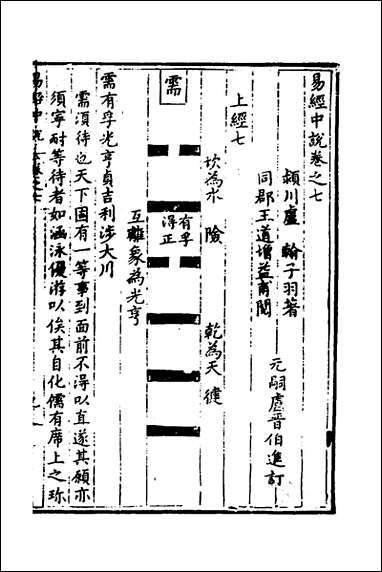 易經中說卷之七
潁川盧 翰子羽著
同郡王道增益甫閱
元嗣盧晉伯進訂
上經七
坎為水 險
乾為天 健
需
有孚
得正
互離象為光亨
需有孚光亨貞吉利涉大川
需須待也天下固有一等事到面前不得以直遂其願亦
須寧耐等待者如涵泳優游以俟其自化儒有席上之珎
易經中說 卷之七